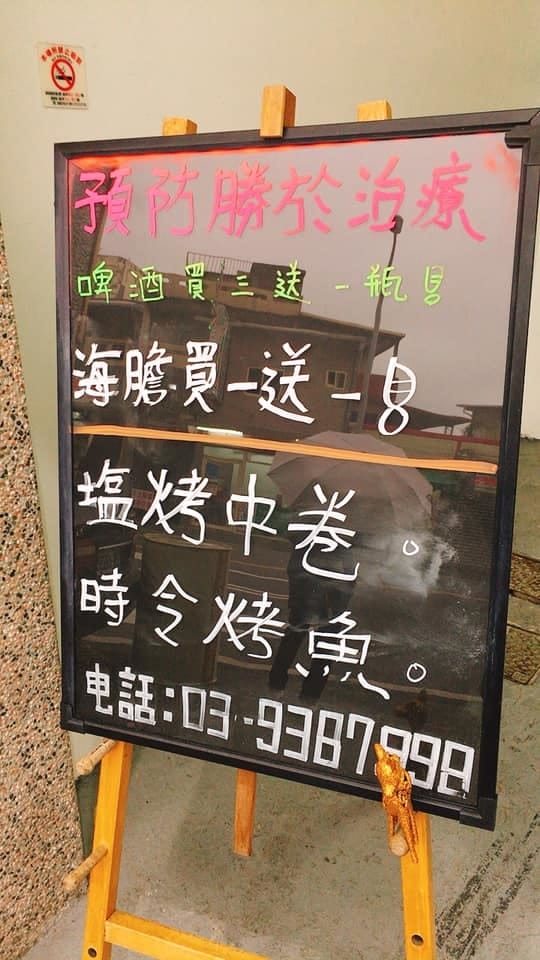 預防勝於治療
啤酒買三送一瓶
海膽買一送一
塩烤中卷。
時令烤魚。
电話:03-9387998